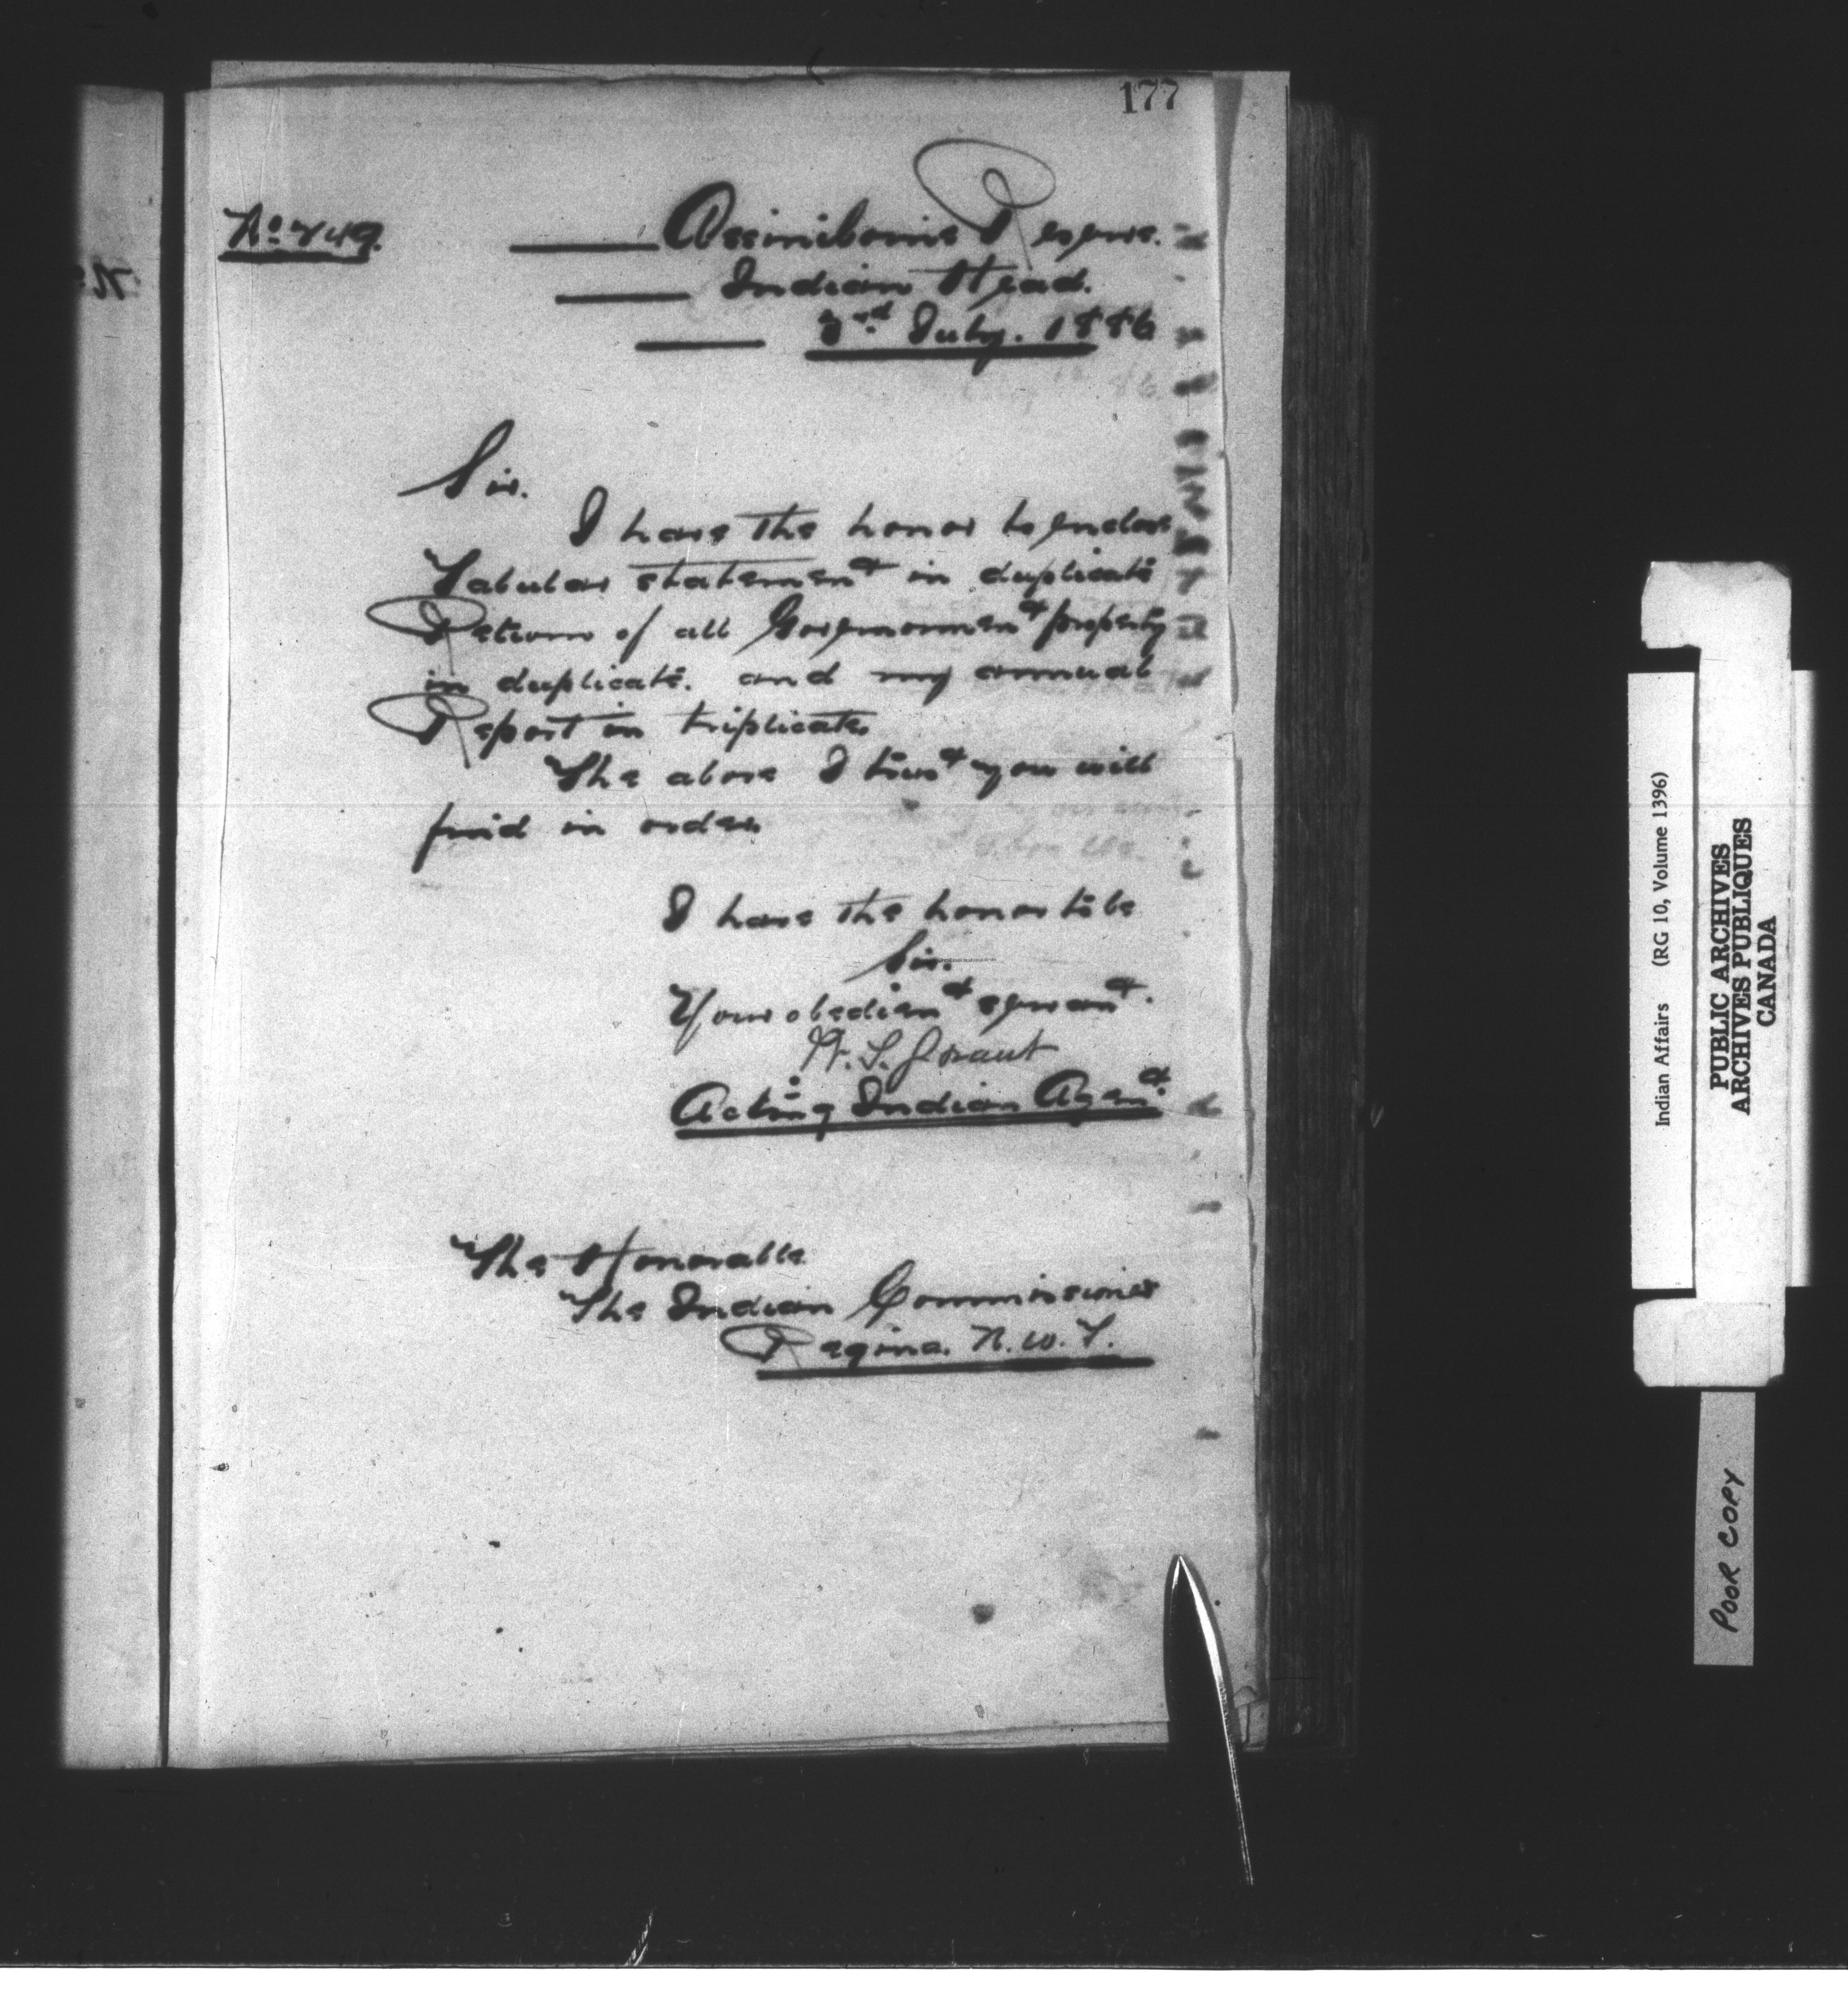 177
No 749.
Assiniboine Reserve.
Indian Head.
3rd July. 1886
Sir.
I have the honor to enclose
Tabular statement in duplicate
Return of all Government property
in duplicate. and my annual
Report in triplicate
The above I trust you will
find in order
I have the honor to be
Sir.
Your obedient servant.
W. S. Grant
Acting Indian Agent.
The Honorable
The Indian Commissioner
Regina. N. W. T.
Indian Affairs (RG 10, Volume 1396)
PUBLIC ARCHIVES
ARCHIVES PUBLIQUES
CANADA
POOR COPY